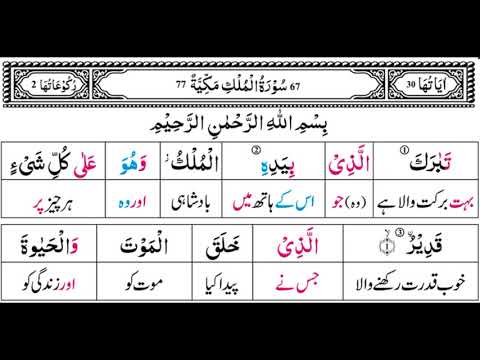 اٰیَاتُهَا 30 67 سُوْرَةُ الْمُلْكِ مَكِّیَّةٌ 77 رُكُوْعَاتُهَا 2
بِسْمِ اللّٰهِ الرَّحْمٰنِ الرَّحِیْمِ
تَبٰرَكَ ① الَّذِیْ بِیَدِهِ ② الْمُلْكُ ؗ وَهُوَ عَلٰی كُلِّ شَیْءٍ
بہت برکت والا ہے (وہ) جو اس کے ہاتھ میں بادشاہی اور وہ ہر چیز پر
قَدِیْرُۨ ③ ۙ﴿۱﴾ الَّذِیْ خَلَقَ الْمَوْتَ وَالْحَیٰوةَ
خوب قدرت رکھنے والا جس نے پیدا کیا موت کو اور زندگی کو